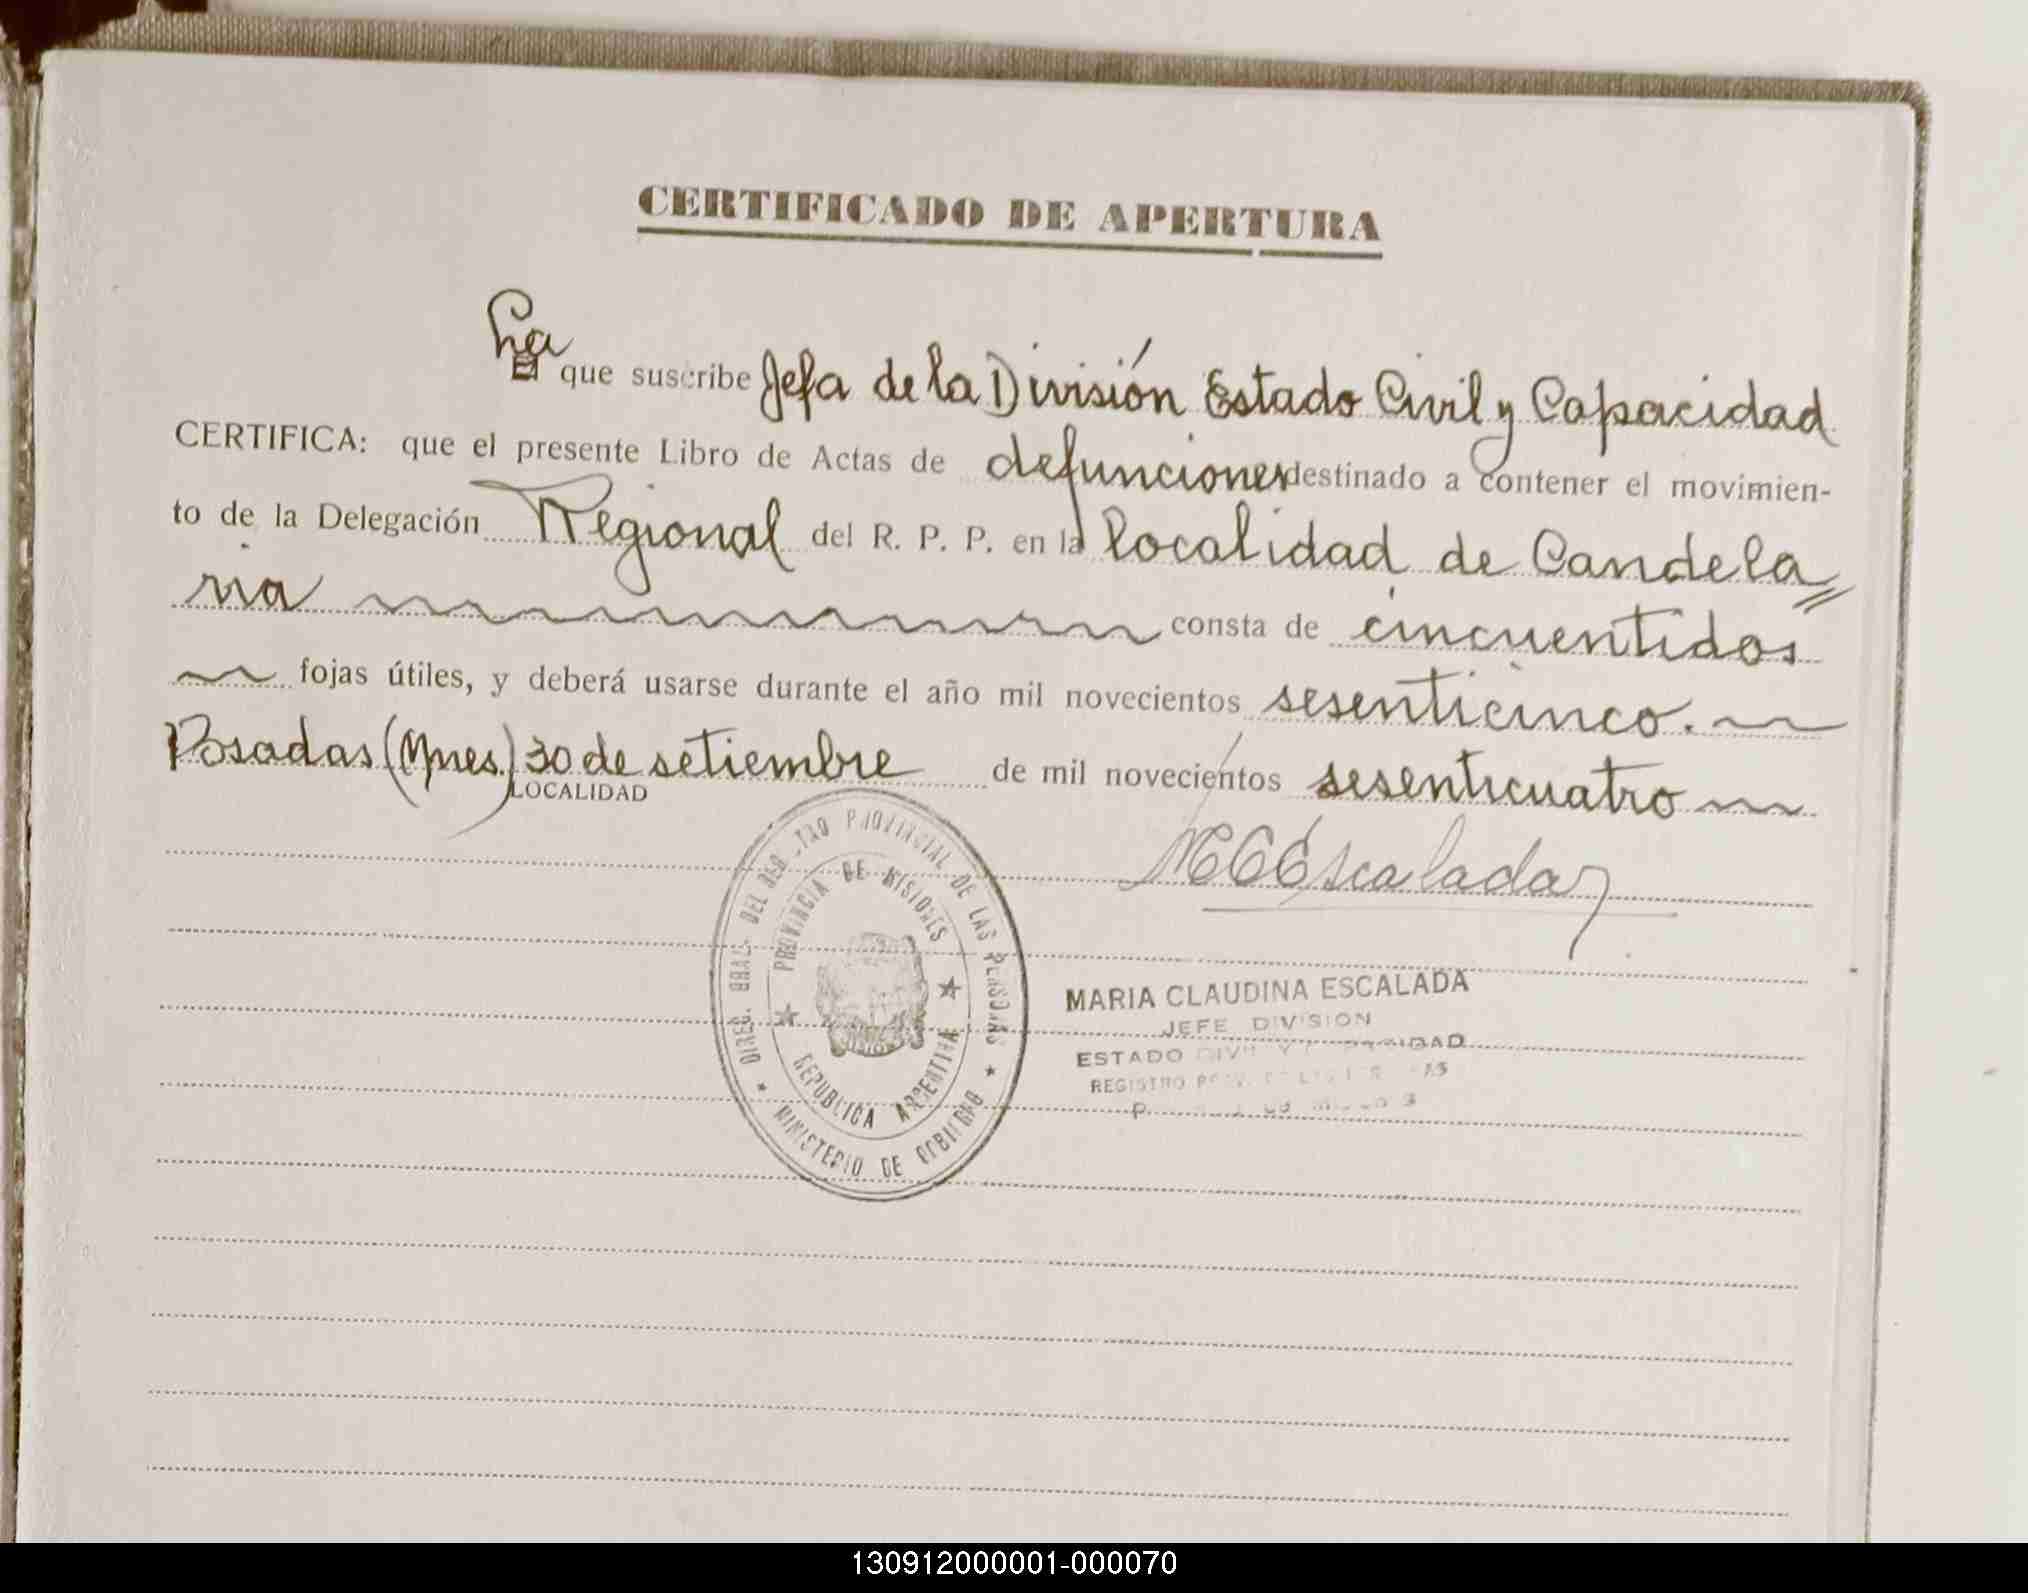 CERTIFICADO DE APERTURA
La
El que suscribe Jefa de la División Estado Civil y Capacidad
CERTIFICA: que el presente Libro de Actas de defunciones destinado a contener el movimien-
to de la Delegación Regional del R. P. P. en la localidad de Candela
ria consta de cincuentidos
fojas útiles, y deberá usarse durante el año mil novecientos sesenticinco.
Posadas (Mnes.) 30 de setiembre de mil novecientos sesenticuatro
LOCALIDAD
MCEscalada
PROVINCIAL DE LAS PERSONAS
MINISTERIO DE GOBIERNO
PROVINCIA DE MISIONES
REPUBLICA ARGENTINA
MARIA CLAUDINA ESCALADA
JEFE DIVISION
ESTADO CIVIL Y
REGISTRO
130912000001-000070